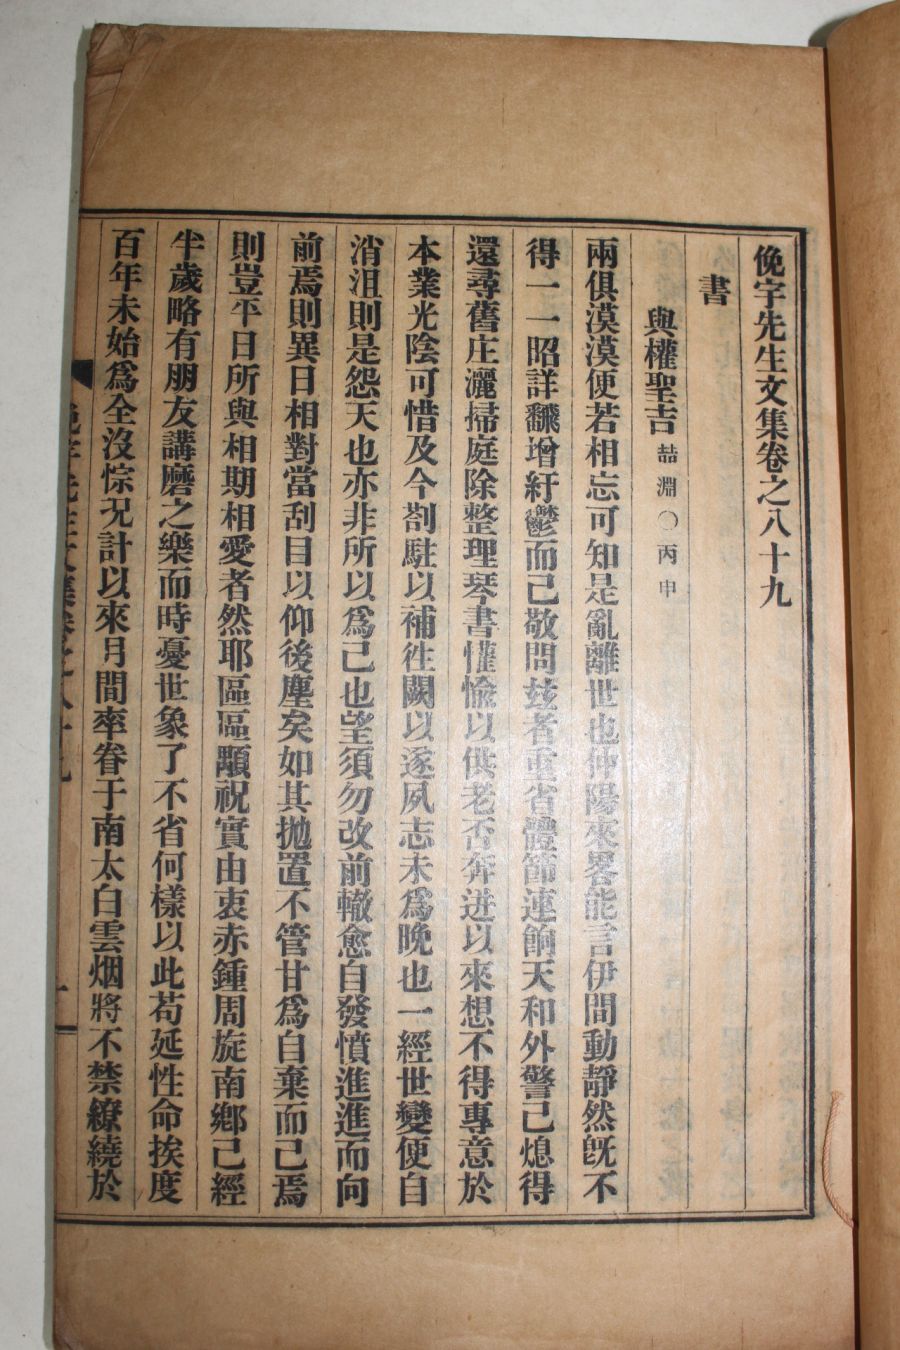 俛宇先生文集卷之八十九
書
與權聖吉 喆淵○丙申
兩俱漠漠便若相忘可知是亂離世也仲陽來畧能言伊間動靜然旣不
得一一昭詳飜增紆鬱而已敬問玆者重省體節連餉天和外警已熄得
還尋舊庄灑掃庭除整理琴書懽愉以供老否奔迸以來想不得專意於
本業光陰可惜及今剳駐以補徃闕以遂夙志未爲晩也一經世變便自
消沮則是怨天也亦非所以爲己也望須勿改前轍愈自發憤進進而向
前焉則異日相對當刮目以仰後塵矣如其抛置不管甘爲自棄而已焉
則豈平日所與相期相愛者然耶區區顒祝實由衷赤鍾周旋南鄕已經
半歲略有朋友講磨之樂而時憂世象了不省何樣以此苟延性命挨度
百年未始爲全沒悰况計以來月間率眷于南太白雲烟將不禁繚繞於